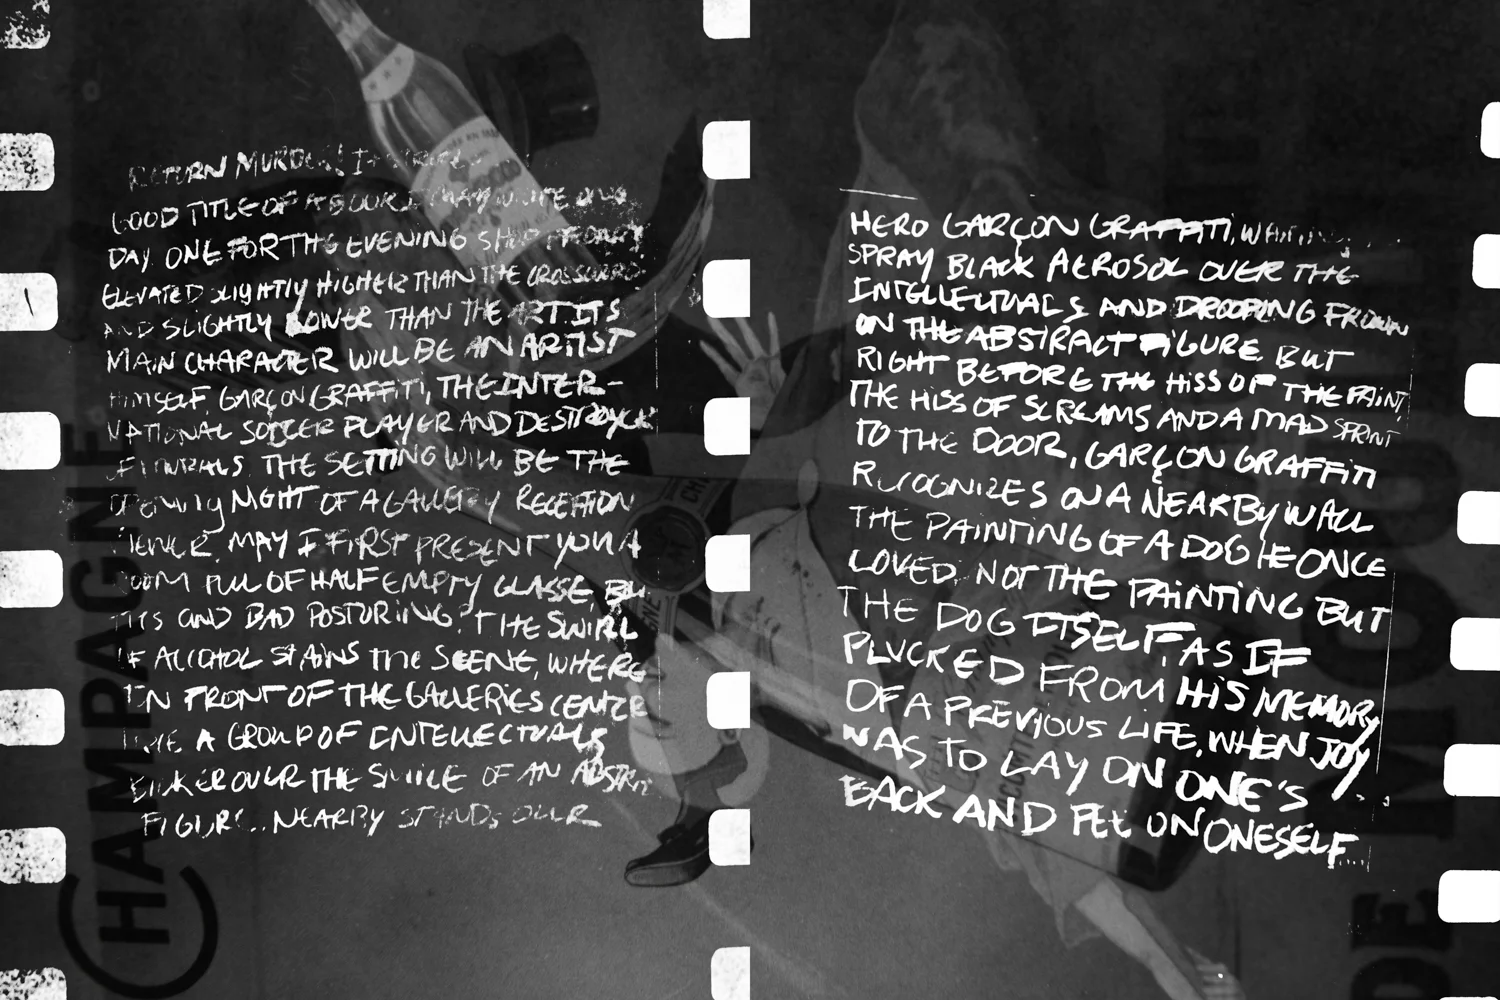 RETURN MURDER! IT
GOOD TITLE OF A BOOK I MAY WRITE ONE
DAY. ONE FOR THE EVENING
ELEVATED SLIGHTLY HIGHER THAN THE CROSSWORD
AND SLIGHTLY LOWER THAN THE ART. ITS
MAIN CHARACTER WILL BE AN ARTIST
HIMSELF, GARÇON GRAFFITI, THE INTER-
NATIONAL SOCCER PLAYER AND DESTROYER
FUNERALS THE SETTING WILL BE THE
OPENING NIGHT OF A GALLERY RECEPTION
HENCE MAY I FIRST PRESENT YOU A
ROOM FULL OF HALF EMPTY GLASSE, BU
TTS AND BAD POSTURING? THE SWIRL
OF ALCOHOL STAINS THE SCENE, WHERE
IN FRONT OF THE GALLERIES CENTER
A GROUP OF INTELLECTUALS
BICKER OVER THE SMILE OF AN ABSTRACT
FIGURE.. NEARBY STANDS OUR
HERO GARÇON GRAFFITI, WAITING
SPRAY BLACK AEROSOL OVER THE
INTELLECTUALS AND DROOPING FROWN
ON THE ABSTRACT FIGURE. BUT
RIGHT BEFORE THE HISS OF THE PAINT,
THE HISS OF SCREAMS AND A MAD SPRINT
TO THE DOOR, GARÇON GRAFFITI
RECOGNIZES ON A NEARBY WALL
THE PAINTING OF A DOG HE ONCE
LOVED. NOT THE PAINTING BUT
THE DOG ITSELF. AS IF
PLUCKED FROM HIS MEMORY
OF A PREVIOUS LIFE, WHEN JOY
WAS TO LAY ON ONE'S
BACK AND PEE ON ONESELF...
CHAMPAGNE
DE